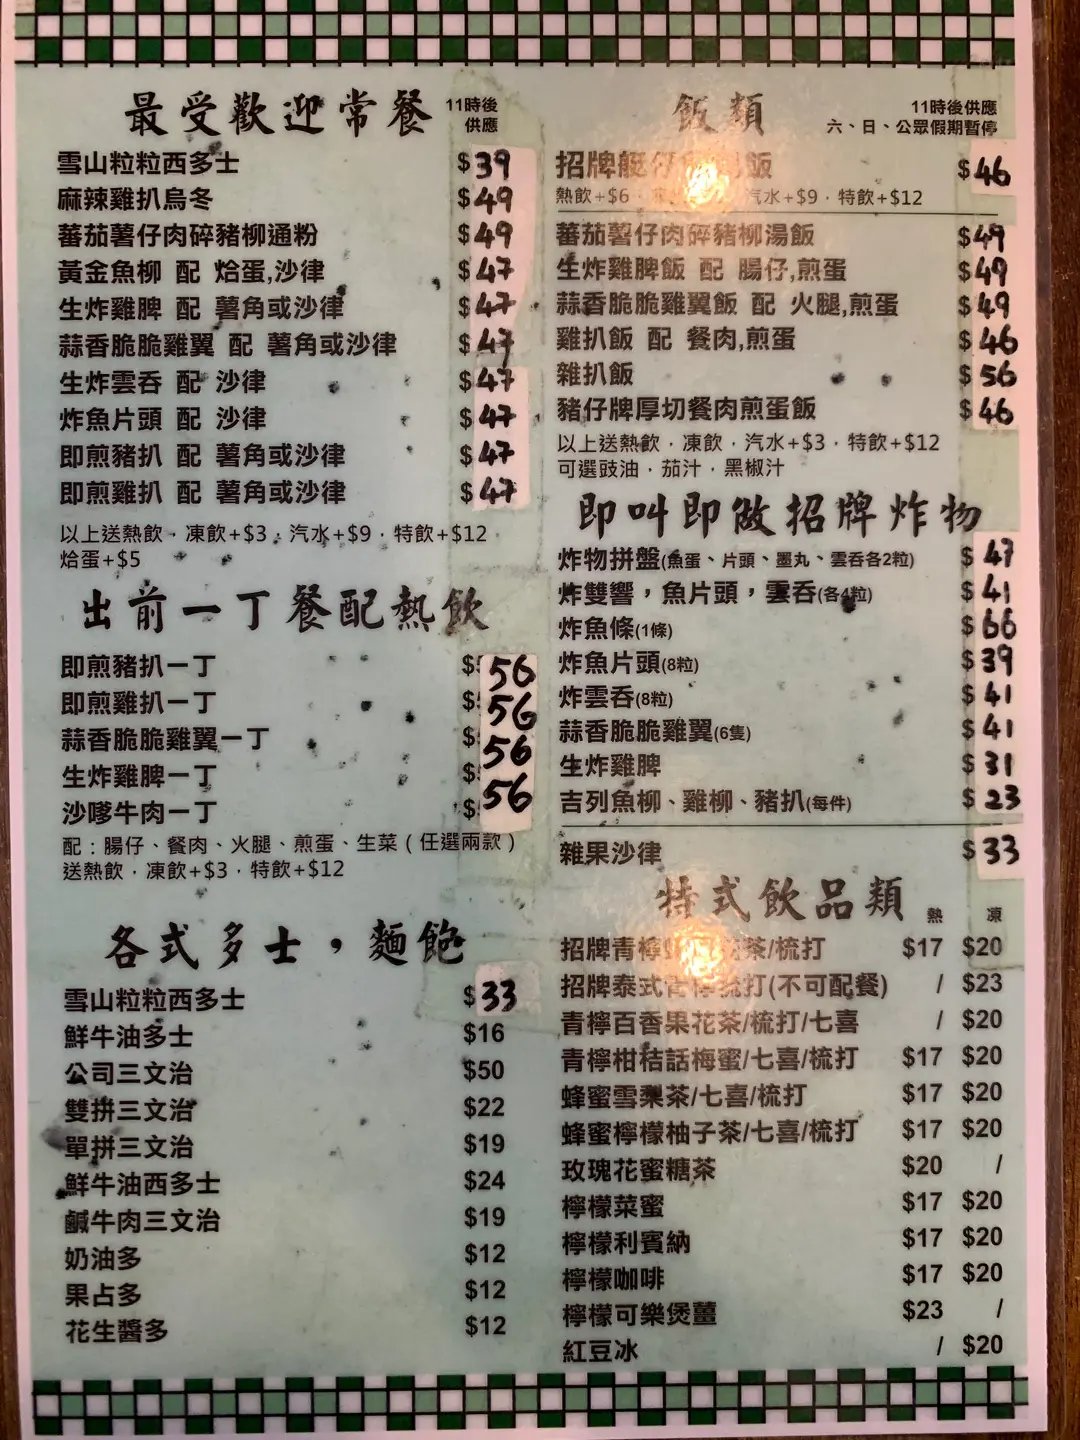 最受歡迎常餐 11時後供應
雪山粒粒西多士 $39
麻辣雞扒烏冬 $49
蕃茄薯仔肉碎豬柳通粉 $49
黃金魚柳 配 烚蛋,沙律 $47
生炸雞脾 配 薯角或沙律 $47
蒜香脆脆雞翼 配 薯角或沙律 $47
生炸雲吞 配 沙律 $47
炸魚片頭 配 沙律 $47
即煎豬扒 配 薯角或沙律 $47
即煎雞扒 配 薯角或沙律 $47
以上送熱飲．凍飲+$3．汽水+$9．特飲+$12
烚蛋+$5
出前一丁餐配熱飲
即煎豬扒一丁 $56
即煎雞扒一丁 $56
蒜香脆脆雞翼一丁 $56
生炸雞脾一丁 $56
沙嗲牛肉一丁 $
配：腸仔、餐肉、火腿、煎蛋、生菜（任選兩款）
送熱飲．凍飲+$3．特飲+$12
各式多士，麵飽
雪山粒粒西多士 $33
鮮牛油多士 $16
公司三文治 $50
雙拼三文治 $22
單拼三文治 $19
鮮牛油西多士 $24
鹹牛肉三文治 $19
奶油多 $12
果占多 $12
花生醬多 $12
飯類 11時後供應
六、日、公眾假期暫停
招牌艇仔 飯 $46
熱飲+$6． 汽水+$9．特飲+$12
蕃茄薯仔肉碎豬柳湯飯 $49
生炸雞脾飯 配 腸仔,煎蛋 $49
蒜香脆脆雞翼飯 配 火腿,煎蛋 $49
雞扒飯 配 餐肉,煎蛋 $46
雜扒飯 $56
豬仔牌厚切餐肉煎蛋飯 $46
以上送熱飲．凍飲．汽水+$3．特飲+$12
可選豉油．茄汁．黑椒汁
即叫即做招牌炸物
炸物拼盤(魚蛋、片頭、墨丸、雲吞各2粒) $47
炸雙響，魚片頭，雲吞(各4粒) $41
炸魚條(1條) $66
炸魚片頭(8粒) $39
炸雲吞(8粒) $41
蒜香脆脆雞翼(6隻) $41
生炸雞脾 $31
吉列魚柳、雞柳、豬扒(每件) $23
雜果沙律 $33
特式飲品類 熱 凍
招牌青檸 茶/梳打 $17 $20
招牌泰式青檸梳打(不可配餐) / $23
青檸百香果花茶/梳打/七喜 / $20
青檸柑桔話梅蜜/七喜/梳打 $17 $20
蜂蜜雪梨茶/七喜/梳打 $17 $20
蜂蜜檸檬柚子茶/七喜/梳打 $17 $20
玫瑰花蜜糖茶 $20 /
檸檬菜蜜 $17 $20
檸檬利賓納 $17 $20
檸檬咖啡 $17 $20
檸檬可樂煲薑 $23 /
紅豆冰 / $20